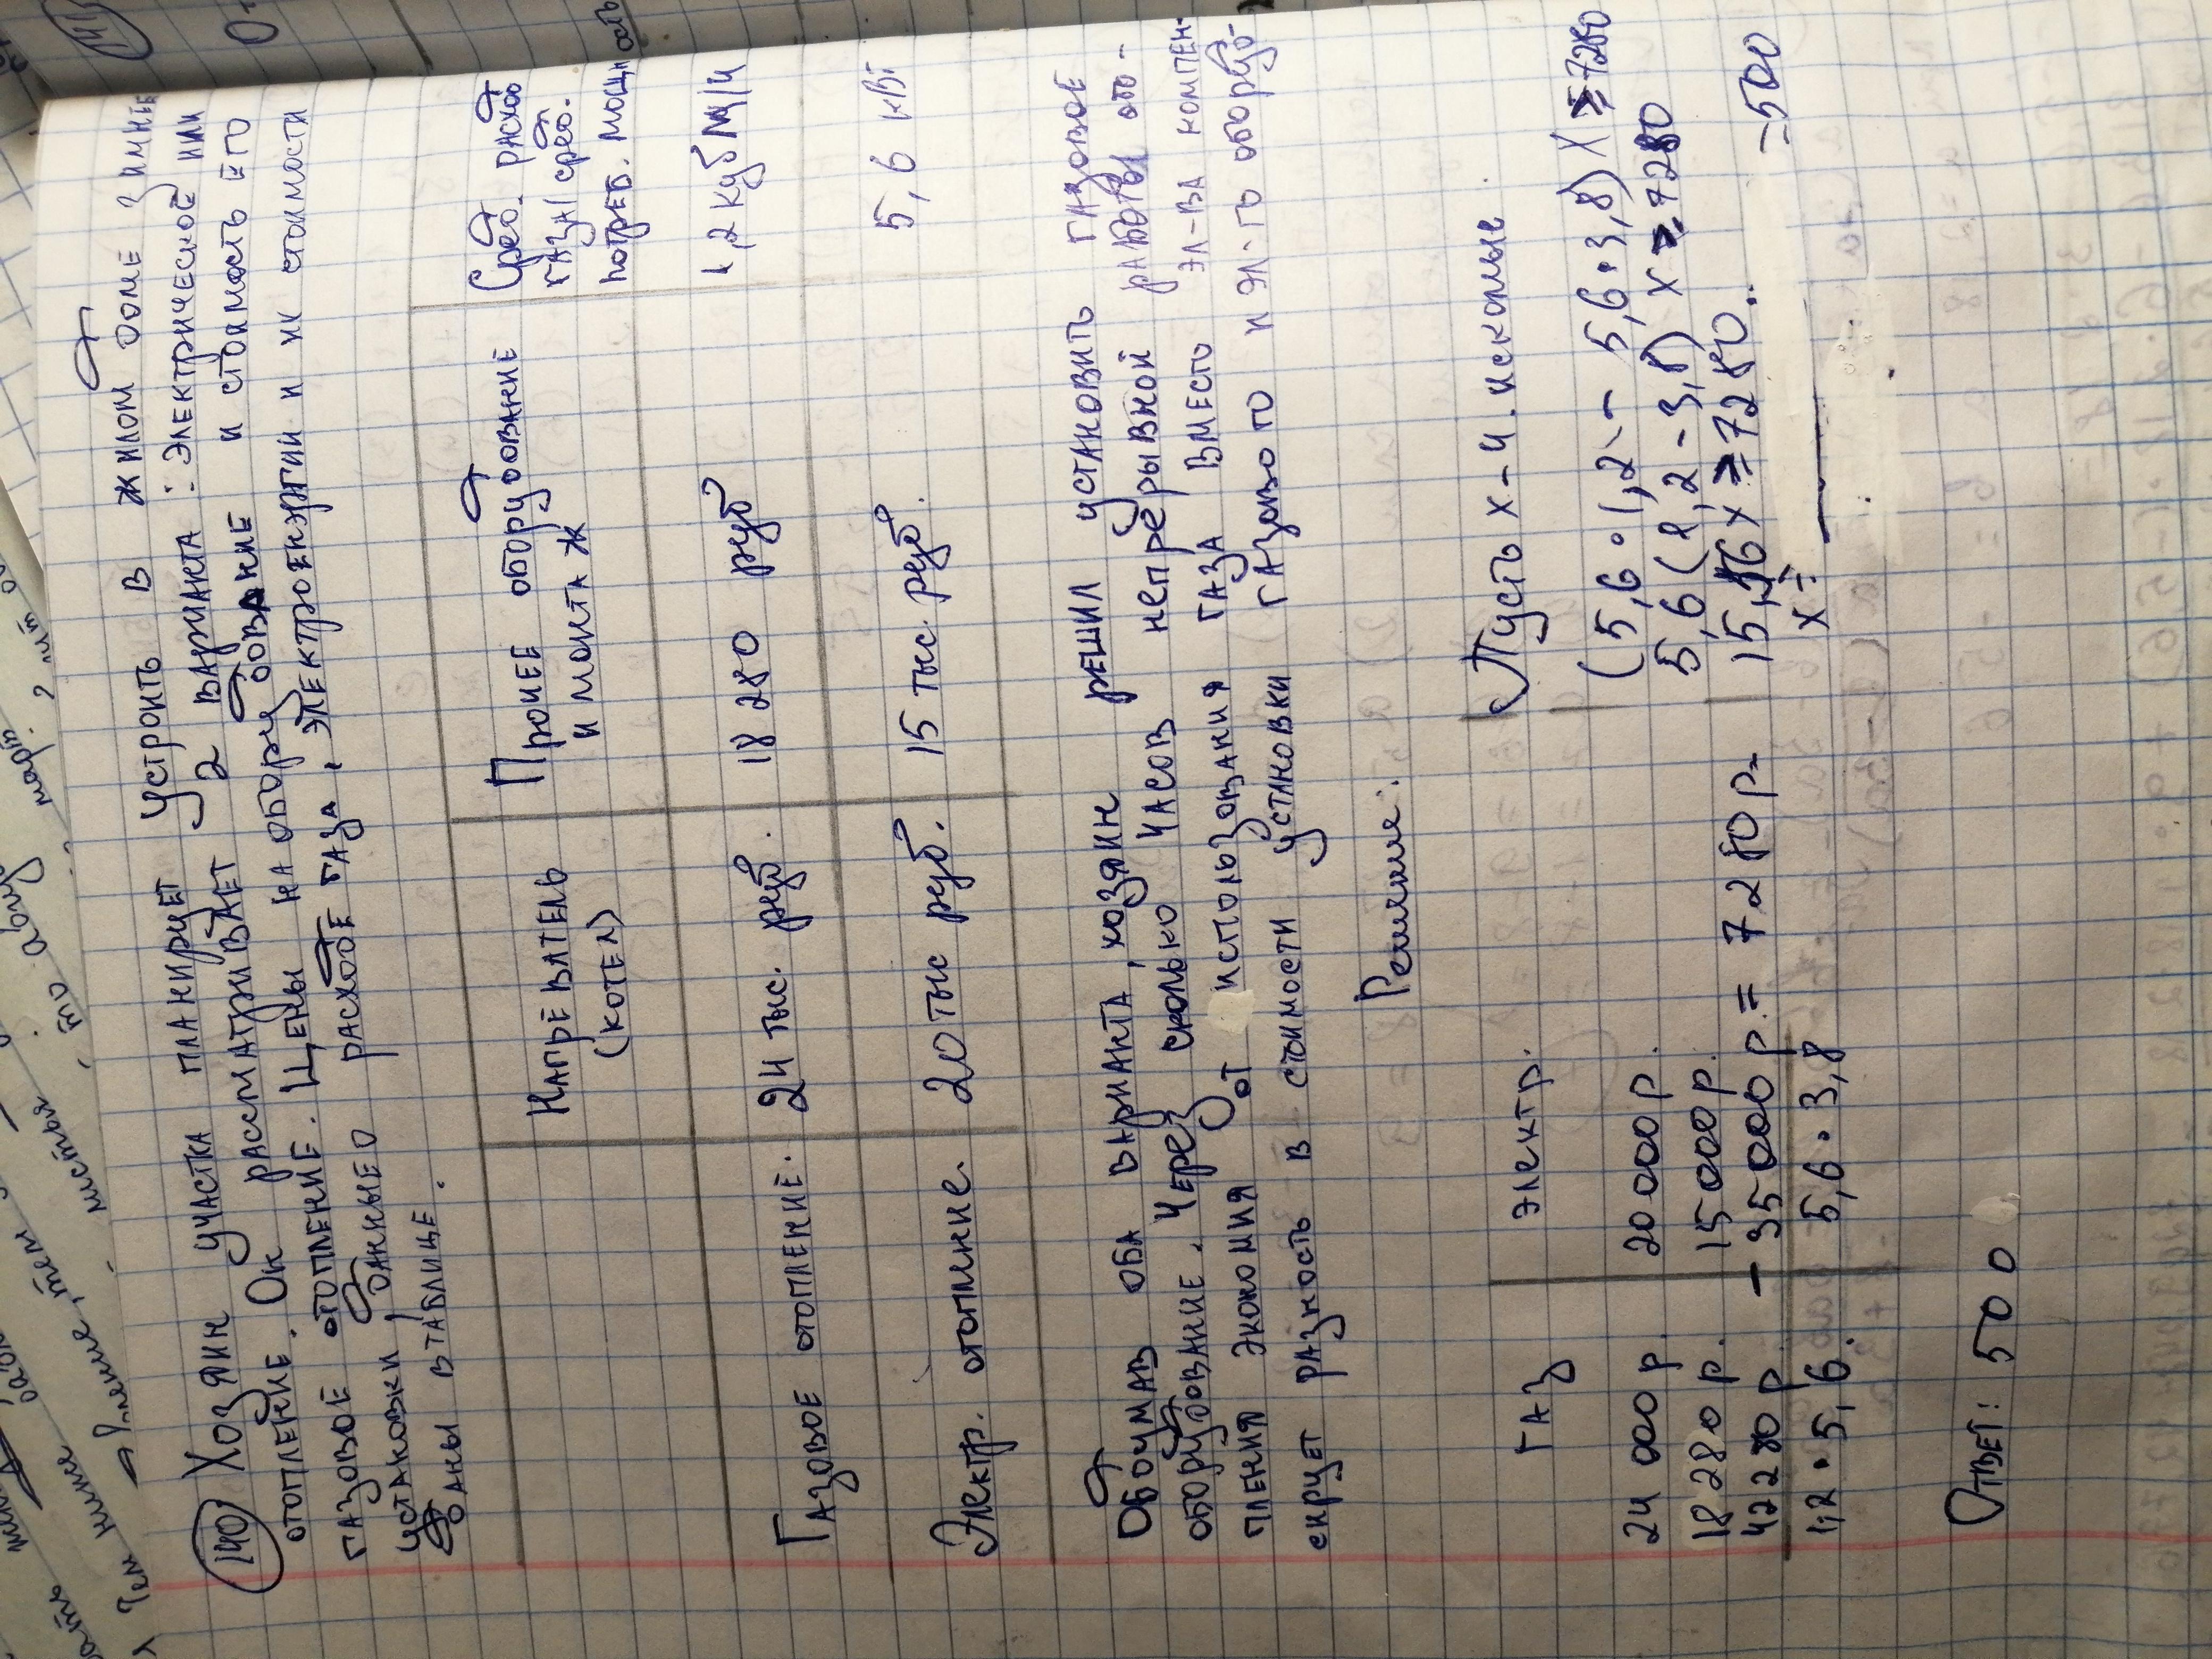 140 Хозяин участка планирует устроить в жилом доме зимнее
отопление. Он рассматривает 2 варианта: электрическое или
газовое отопление. Цены на оборудование и стоимость его
установки, данные о расходе газа, электроэнергии и их стоимости
даны в таблице.
Нагреватель (котел)
Прочее оборудование и монтаж
Сред. расход газа/ сред. потреб. мощность
Газовое отопление. 24 тыс. руб. 18 280 руб 1,2 куб м/ч
Электр. отопление. 20 тыс руб. 15 тыс. руб. 5,6 кВт
Обдумав оба варианта, хозяин решил установить газовое
оборудование. Через сколько часов непрерывной работы ото-
пления экономия от использования газа вместо эл-ва компен-
сирует разность в стоимости установки газового и эл-го оборудо-
Решение:
газ электр.
Пусть x - ч. искомые.
24 000 р. 20 000 р.
18 280 р. 15 000 р.
42 280 р - 35 000 р = 7280 р.
1,2 · 5,6. 5,6 · 3,8
(5,6 · 1,2 - 5,6 · 3,8) x = 7280
5,6 (1,2 - 3,8) x = 7280
x =
= 500
Ответ: 500